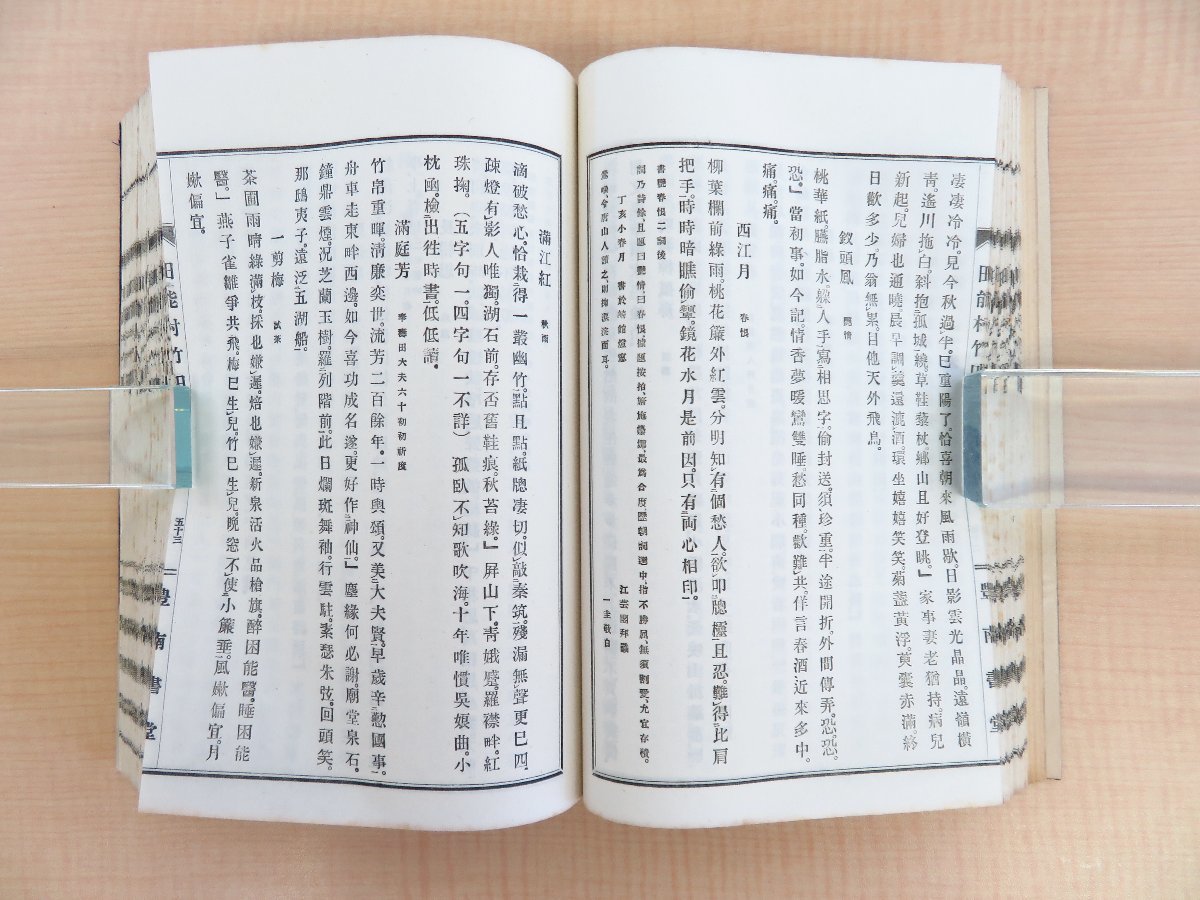 凄凄冷冷。見今秋過半。巳重陽了。恰喜朝來風雨歇。日影雲光晶晶。遠嶺橫
靑。遙川拖白。斜抱孤城繞。草鞋藜杖鄕山且好登眺。」家事妻老猶持。病兒
新起。兒婦也通曉。晨早調羹還漉酒。環坐嬉嬉笑笑。菊盞黃浮。萸囊赤滿。終
日歡多少。乃翁無累。目他天外飛鳥。
釵頭鳳
桃華紙。臙脂水。人手寫相思字。偷封送。須珍重。半途開折。外間傳弄。恐。恐。
恐。」當初事。如今記。情香夢暖鸞雙睡。愁同種。歡難共。佯言春酒。近來多中。
痛。痛。痛。
西江月 春恨
柳葉欄前綠雨。桃花簾外紅雲。分明知有個愁人。欲叩牕櫺且忍。難得比肩
把手。時時暗瞧偷顰。鏡花水月是前因。只有兩心相印。
書艷春恨二詞後
丁亥小春月
一圭敬白
滿江紅 秋雨
滴破愁心。恰栽得一叢幽竹。點且點。紙牕凄切。似敲秦筑。殘漏無聲更巳四。
疎燈有影人唯獨。湖石前。存否舊鞋痕。秋苔綠。」屏山下。靑娥蹙。羅襟畔。紅
珠掬。(五字句一。四字句一不詳)孤臥不知歌吹海。十年唯慣吳娘曲。小
枕凾。檢出徃時書。低低讀。
滿庭芳 奉壽田大夫六十初初祈度
竹帛重暉。淸廉奕世。流芳二百餘年。一時輿頌。又美大夫賢。早歲辛勤國事。
舟車走東畔西邊。如今喜功成名遂。更好作神仙。」塵緣何必謝廟堂泉石。
鐘鼎雲煙。况芝蘭玉樹。羅列階前。此日爛斑舞袖。行雲駐。素瑟朱弦。回頭笑。
那鴟夷子。遠泛五湖船。
一剪梅 試茶
茶圃雨晴綠滿枝。採也嫌遲。焙也嫌遲。新泉活火品槍旗。醉困能醫。睡困能
醫。」燕子雀雛爭共飛。梅巳生兒。竹巳生兒。晩窓不使小簾垂。風嫩偏宜。月
嫩偏宜。
五十三
豐南書堂
田能村竹田
豐南書堂